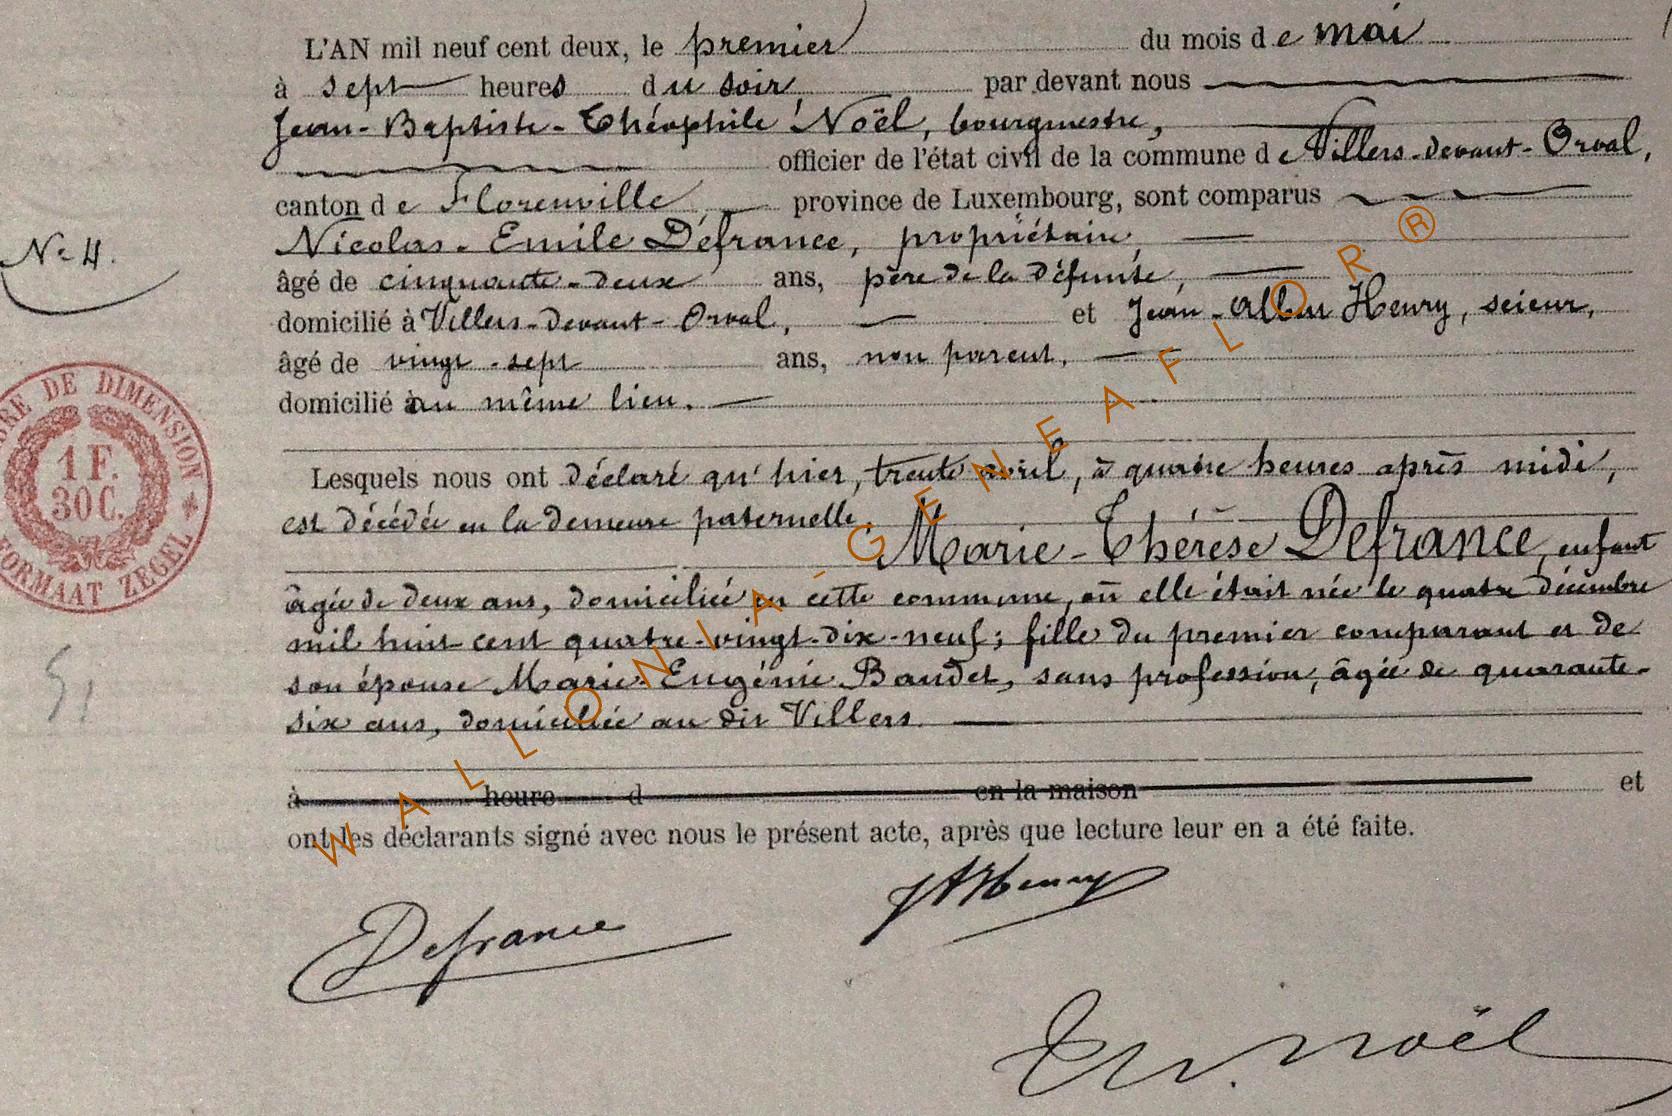 L'AN mil neuf cent deux, le premier du mois de mai
à sept heures du soir, par devant nous
Jean-Baptiste-Théophile Noël, bourgmestre,
officier de l'état civil de la commune de Villers-devant-Orval,
canton de Florenville province de Luxembourg, sont comparus
Nicolas-Emile Défrance, propriétaire,
N° 4.
âgé de cinquante-deux ans, père de la défunte,
domicilié à Villers-devant-Orval, et Jean-Albert Henry, scieur,
âgé de vingt-sept ans, non parent,
domicilié au même lieu.
Lesquels nous ont déclaré qu'hier, trente avril, à quatre heures après midi,
est décédée en la demeure paternelle, Marie-Thérèse Defrance, enfant
âgée de deux ans, domiciliée en cette commune, où elle était née le quatre décembre
mil huit cent quatre-vingt-dix-neuf; fille du premier comparant et de
son épouse Marie-Eugénie Baudet, sans profession, âgée de quarante-
six ans, domiciliée au dit Villers.
à heure d en la maison et
ont les déclarants signé avec nous le présent acte, après que lecture leur en a été faite.
JAHenry
Defrance
Th. Noël
TIMBRE DE DIMENSION
1 F.
30 C.
FORMAAT ZEGEL
WALLONIA-GENEAFLOR ®